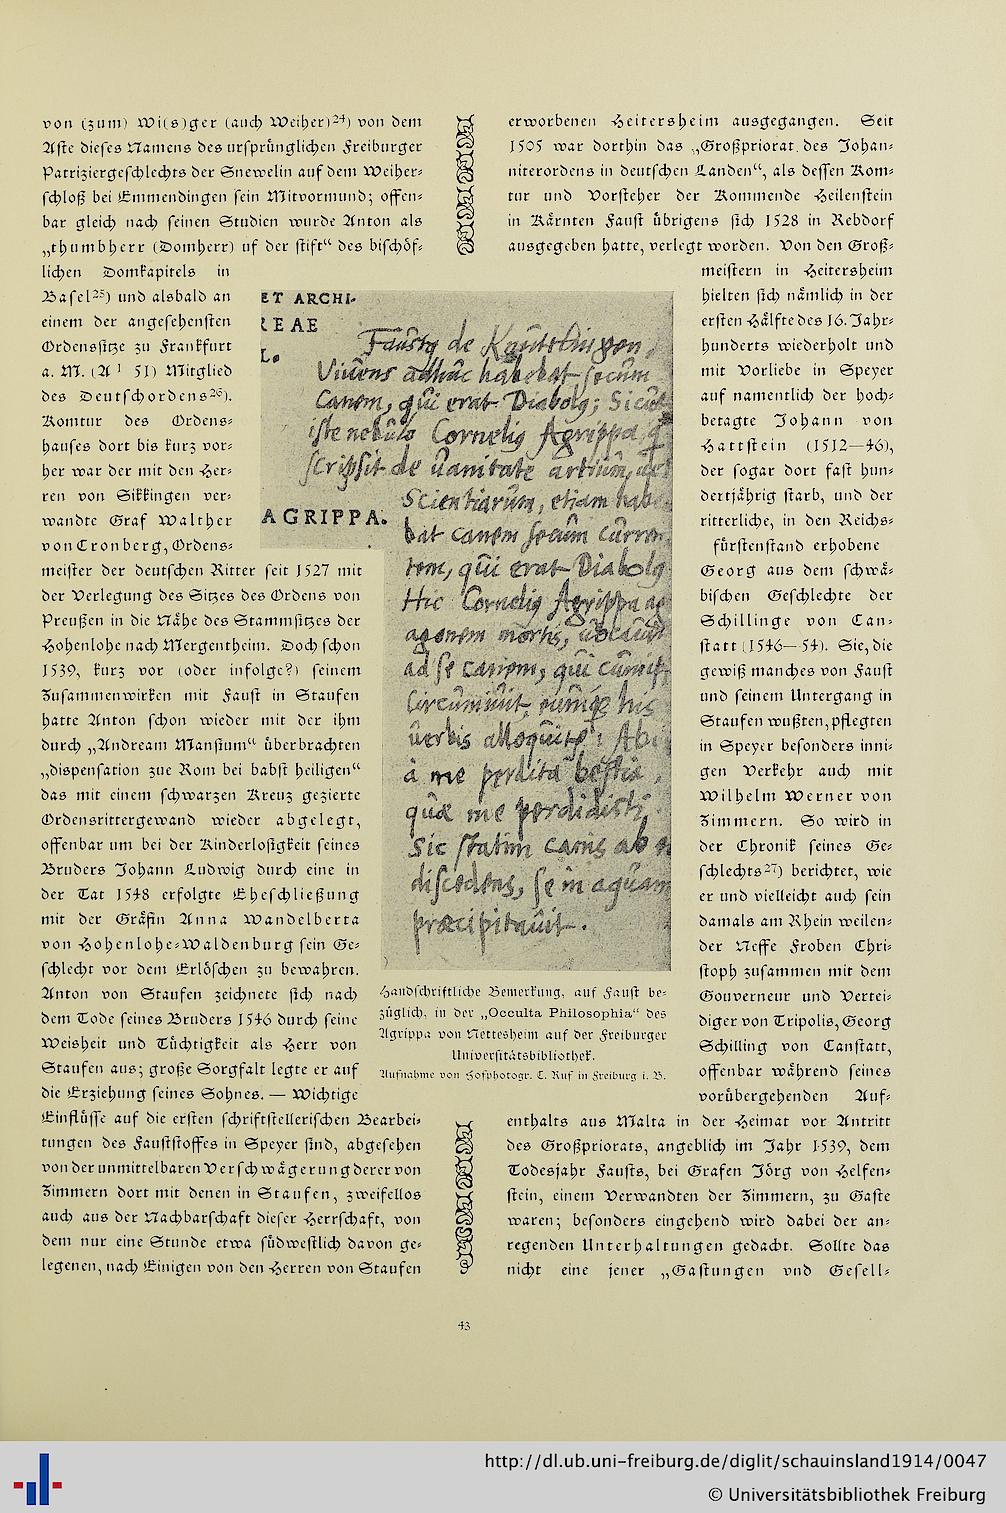 von (zum) Wi(s)ger (auch Weiher)²⁴) von dem
Aste dieses Namens des ursprünglichen Freiburger
Patriziergeschlechts der Snewelin auf dem Weiher-
schloß bei Emmendingen sein Mitvormund; offen-
bar gleich nach seinen Studien wurde Anton als
„thumbherr (Domherr) uf der stift“ des bischöf-
lichen Domkapitels in
Basel²⁵) und alsbald an
einem der angesehensten
Ordenssitze zu Frankfurt
a. M. (A¹ 51) Mitglied
des Deutschordens²⁶).
Komtur des Ordens-
hauses dort bis kurz vor-
her war der mit den Her-
ren von Sikkingen ver-
wandte Graf Walther
von Cronberg, Ordens-
meister der deutschen Ritter seit 1527 mit
der Verlegung des Sitzes des Ordens von
Preußen in die Nähe des Stammsitzes der
Hohenlohe nach Mergentheim. Doch schon
1539, kurz vor (oder infolge?) seinem
Zusammenwirken mit Faust in Staufen
hatte Anton schon wieder mit der ihm
durch „Andream Manstum“ überbrachten
„dispensation zue Rom bei babst heiligen“
das mit einem schwarzen Kreuz gezierte
Ordensrittergewand wieder abgelegt,
offenbar um bei der Kinderlosigkeit seines
Bruders Johann Ludwig durch eine in
der Tat 1548 erfolgte Eheschließung
mit der Gräfin Anna Wandelberta
von Hohenlohe-Waldenburg sein Ge-
schlecht vor dem Erlöschen zu bewahren.
Anton von Staufen zeichnete sich nach
dem Tode seines Bruders 1546 durch seine
Weisheit und Tüchtigkeit als Herr von
Staufen aus; große Sorgfalt legte er auf
die Erziehung seines Sohnes. — Wichtige
Einflüsse auf die ersten schriftstellerischen Bearbei-
tungen des Fauststoffes in Speyer sind, abgesehen
von der unmittelbaren Verschwägerung derer von
Zimmern dort mit denen in Staufen, zweifellos
auch aus der Nachbarschaft dieser Herrschaft, von
dem nur eine Stunde etwa südwestlich davon ge-
legenen, nach Einigen von den Herren von Staufen
ET ARCHI-
REAE
L.
AGRIPPA.
Faustg de Knütlingen,
Vivens adhuc habebat secum
Canem, qui erat Diabolg; Sicut
iste nebulo Cornelig Agrippa, q
scripsit de vanitate artium, et
Scientiarum, etiam habe
bat canem secum curren
tem, qui erat Diabolg
Hic Cornelig Agrippa ag
agonem mortis, vocavit
ad se canem, qui cum it
circumivit, eumque his
verbis alloquitr: Abi
à me perdita bestia,
quæ me perdidisti.
Sic statim canis ab e
discedens, se in aquam
præcipitavit.
Handschriftliche Bemerkung, auf Faust be-
züglich, in der „Occulta Philosophia“ des
Agrippa von Nettesheim auf der Freiburger
Universitätsbibliothek.
Aufnahme von Hofphotogr. C. Ruf in Freiburg i. B.
erworbenen Heitersheim ausgegangen. Seit
1505 war dorthin das „Großpriorat des Johan-
niterordens in deutschen Landen“, als dessen Kom-
tur und Vorsteher der Kommende Heilenstein
in Kärnten Faust übrigens sich 1528 in Rebdorf
ausgegeben hatte, verlegt worden. Von den Groß-
meistern in Heitersheim
hielten sich nämlich in der
ersten Hälfte des 16. Jahr-
hunderts wiederholt und
mit Vorliebe in Speyer
auf namentlich der hoch-
betagte Johann von
Hattstein (1512—46),
der sogar dort fast hun-
dertjährig starb, und der
ritterliche, in den Reichs-
fürstenstand erhobene
Georg aus dem schwä-
bischen Geschlechte der
Schillinge von Can-
statt (1546—54). Sie, die
gewiß manches von Faust
und seinem Untergang in
Staufen wußten, pflegten
in Speyer besonders inni-
gen Verkehr auch mit
Wilhelm Werner von
Zimmern. So wird in
der Chronik seines Ge-
schlechts²⁷) berichtet, wie
er und vielleicht auch sein
damals am Rhein weilen-
der Neffe Froben Chri-
stoph zusammen mit dem
Gouverneur und Vertei-
diger von Tripolis, Georg
Schilling von Canstatt,
offenbar während seines
vorübergehenden Auf-
enthalts aus Malta in der Heimat vor Antritt
des Großpriorats, angeblich im Jahr 1539, dem
Todesjahr Fausts, bei Grafen Jörg von Helfen-
stein, einem Verwandten der Zimmern, zu Gaste
waren; besonders eingehend wird dabei der an-
regenden Unterhaltungen gedacht. Sollte das
nicht eine jener „Gastungen vnd Gesell-
43
http://dl.ub.uni-freiburg.de/diglit/schauinsland1914/0047
© Universitätsbibliothek Freiburg